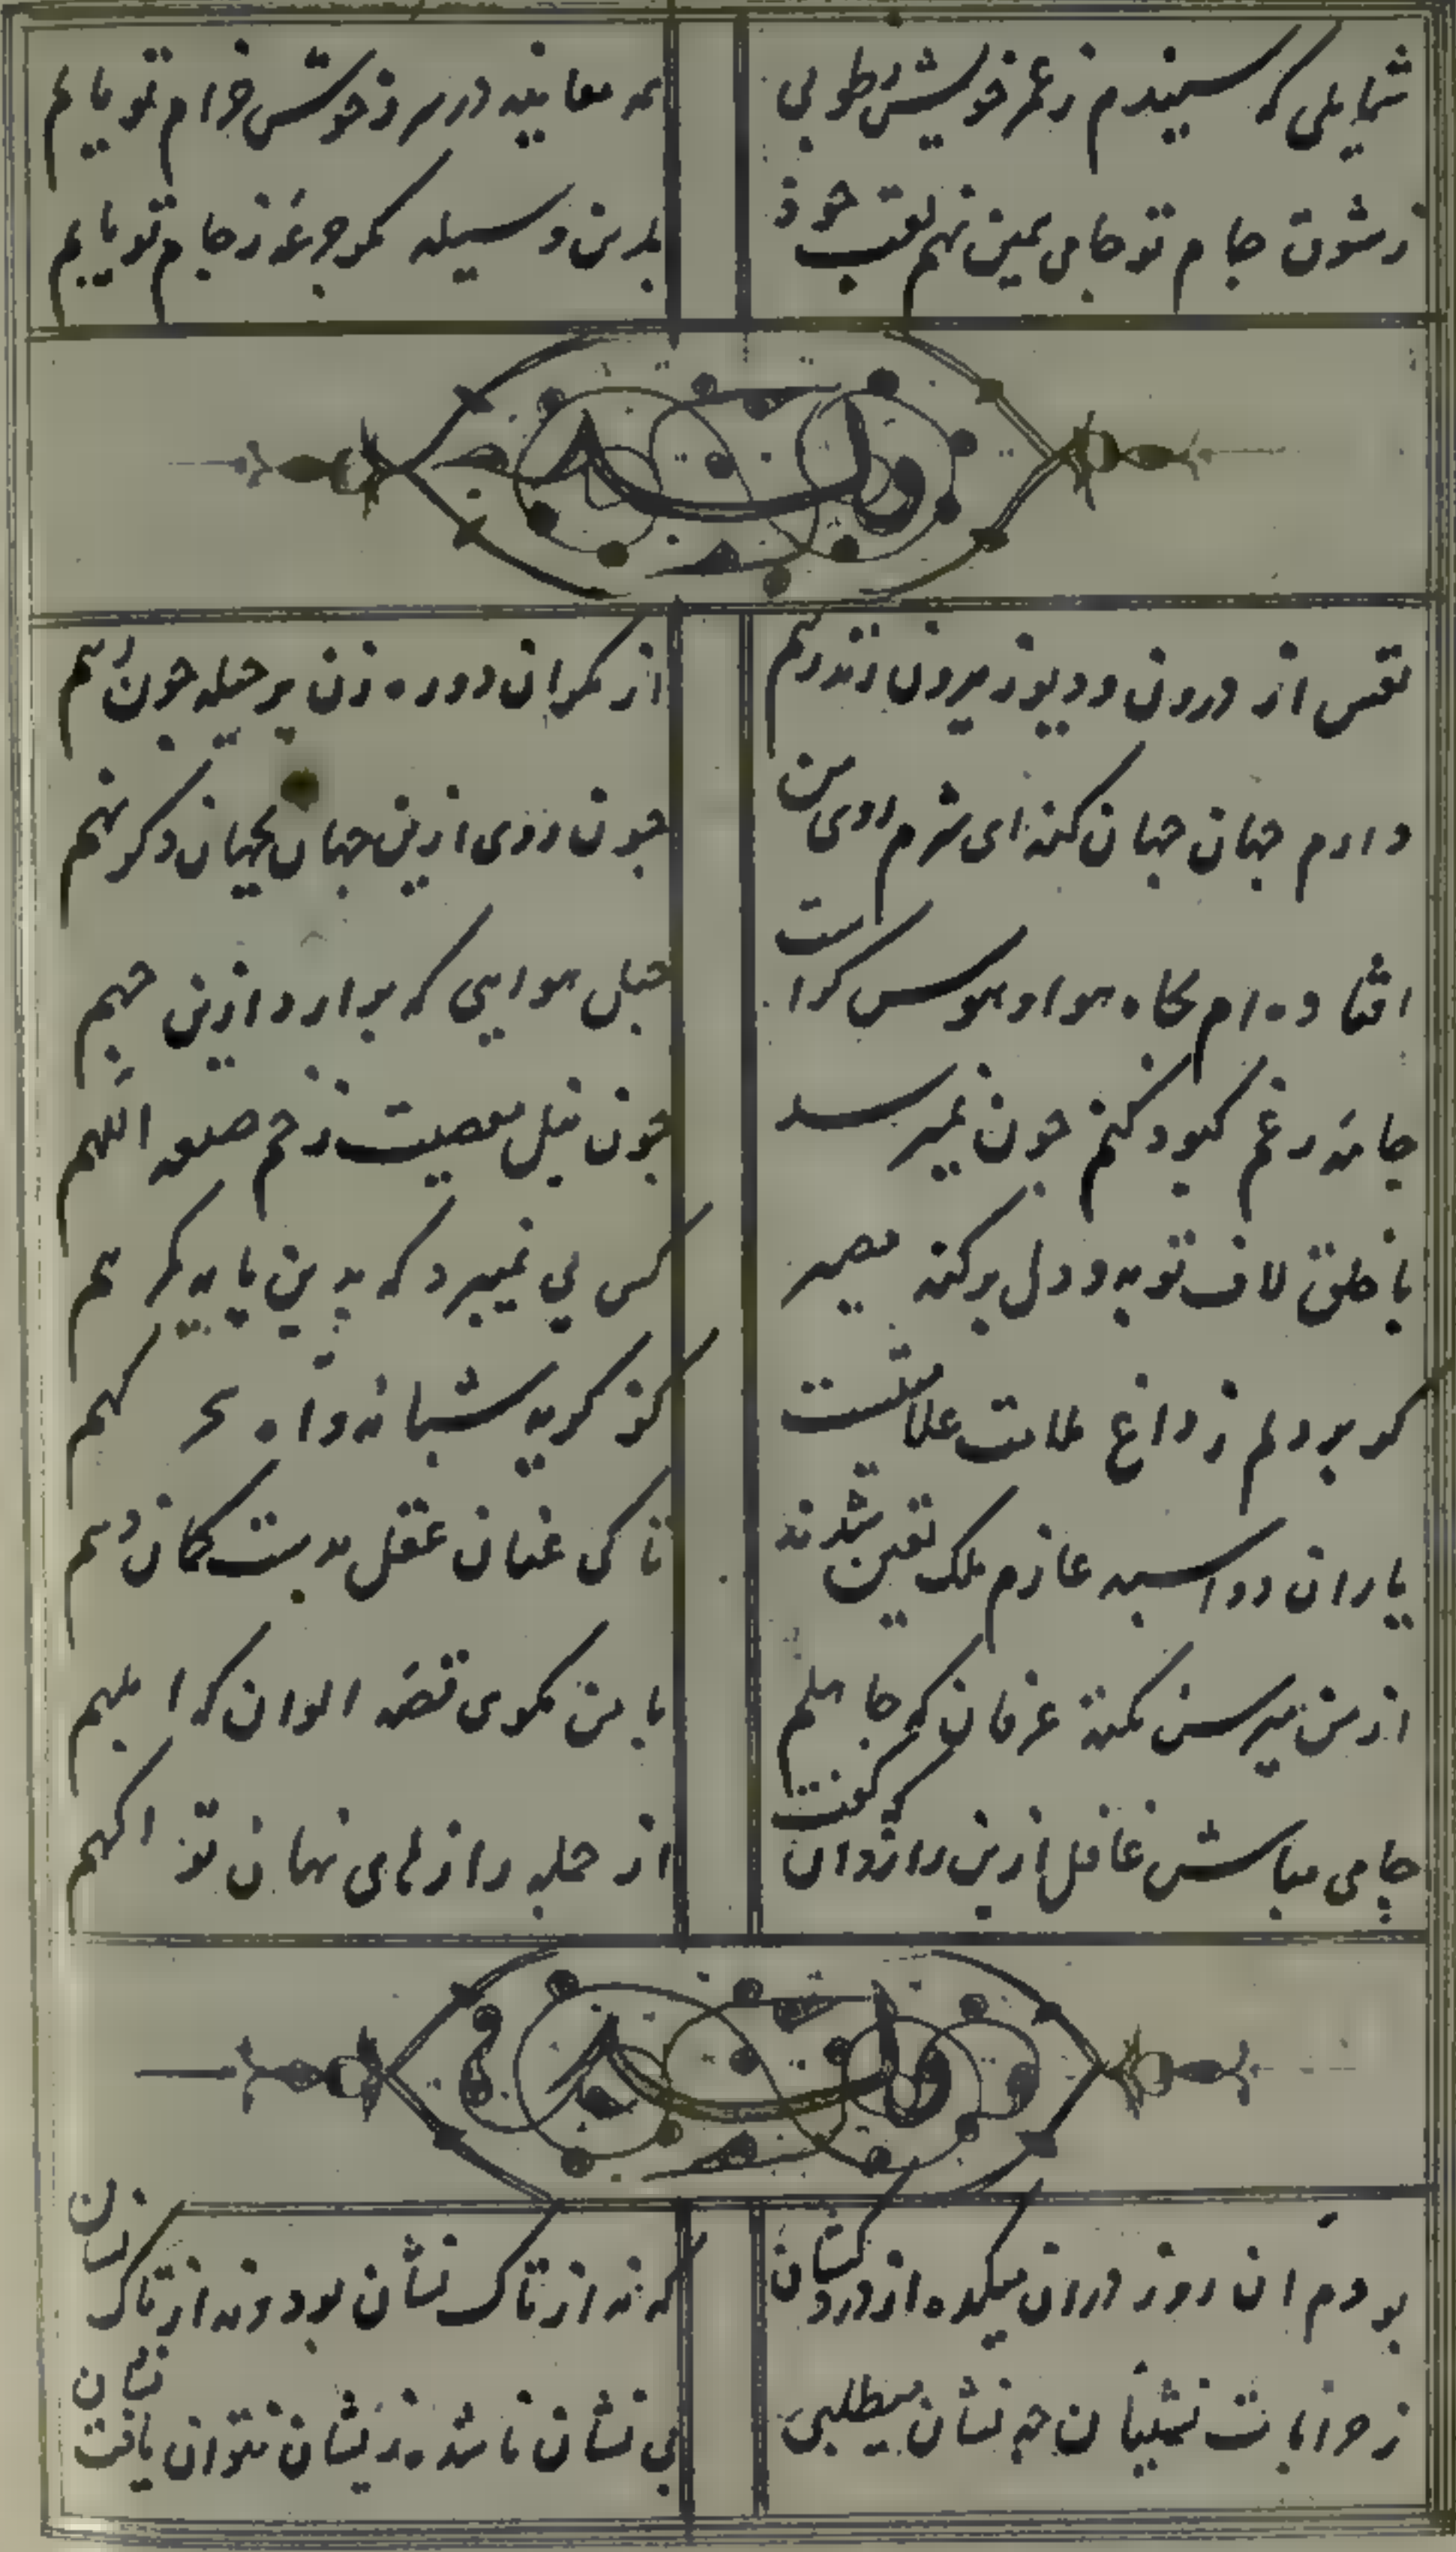 شمایلی که سیندم ز عمر خویش طوبی
همه معاینه در سرو خوش خرام تو یابم
ز شوق جام تو جامی همین نهم لقب خود
بدین وسیله مکر جرعه ز جام تو یابم
نفس از درون و دیو ز بیرون زند رهم
از مکر این دو ره زن پر حیله چون رهم
دارم جهان جهان کنه ای شرم روی من
چون روی ازین جهان بجهان دکر نهم
افتاده ام بجاه هوا و هوس کراست
حبل هوایی که برارد ازین جهم
جامه رغم کبود کنم چون نمیرسد
چون نیل معصیت زخم صبغه اللهم
با خلق لاف توبه و دل بر کنه مصر
کس پی نمیبرد که بدین پایه کمرهم
کر بر دلم ز داغ ملامت علامتست
کو کریه شبانه و آه سحر کهم
یاران دو اسبه عازم ملک یقین شدند
تا کی عنان عقل بدست کمان دهم
از من مپرس نکته عرفان که جاهلم
با من مکوی قصه الوان که ابلهم
جامی مباش غافل ازین رازدان که کفت
از جمله رازهای نهان تو اکهم
بودم ان روز دران میکده از دردکشان
که نه از تاک نشان بود و نه از تاک نشان
ز خرابات نشینان چه نشان میطلبی
بی نشان ناشده زیشان نتوان یافت نشان